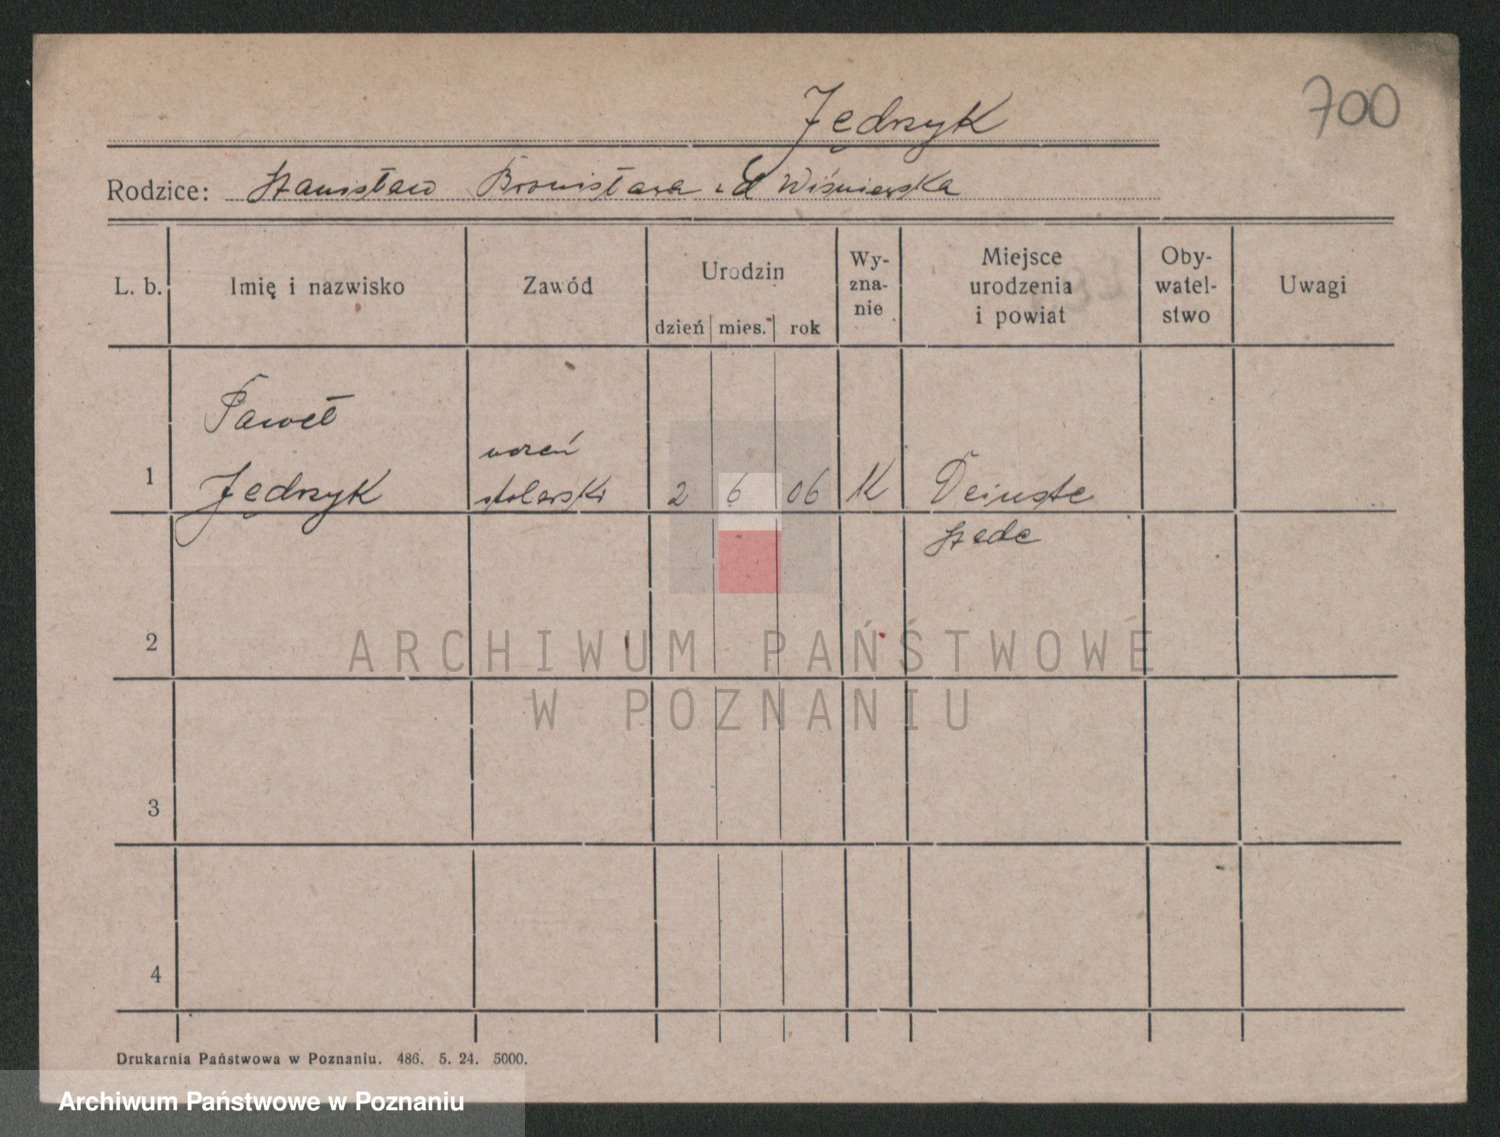 700
Jędrzyk
Rodzice: Stanisław Bronisława z d Wiśniewska
L. b. Imię i nazwisko Zawód Urodzin dzień mies. rok Wy-zna-nie Miejsce urodzenia i powiat Oby-watel-stwo Uwagi
Paweł
1 Jędrzyk uczeń stolarski 2 6 06 K
2
3
4
Drukarnia Państwowa w Poznaniu. 486. 5. 24. 5000.
ARCHIWUM PAŃSTWOWE
W POZNANIU
Archiwum Państwowe w Poznaniu